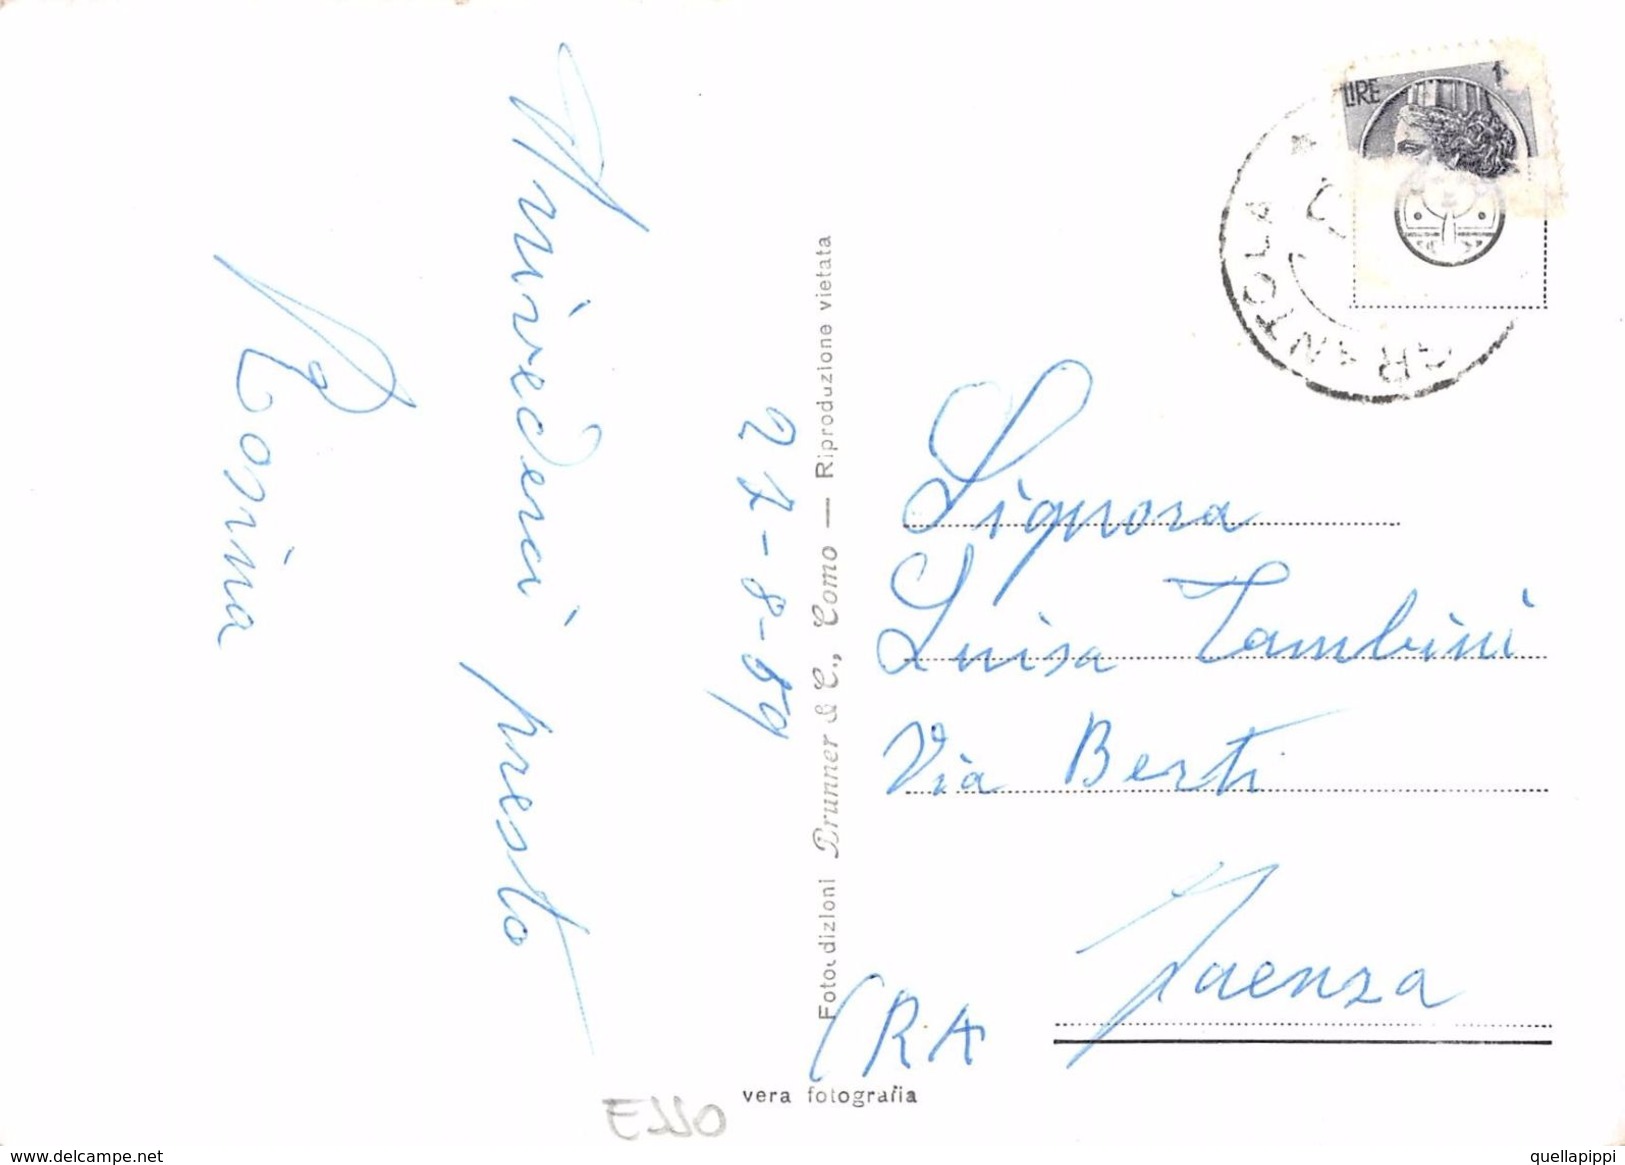 Arrivederci presto
Rosina
27-8-69
Fotoedizioni Brunner & C., Como — Riproduzione vietata
LIRE 1
GRANTOLA
Signora
Luisa Tambini
Via Berti
Faenza
(RA
vera fotografia
E110
www.delcampe.net
quellapippi